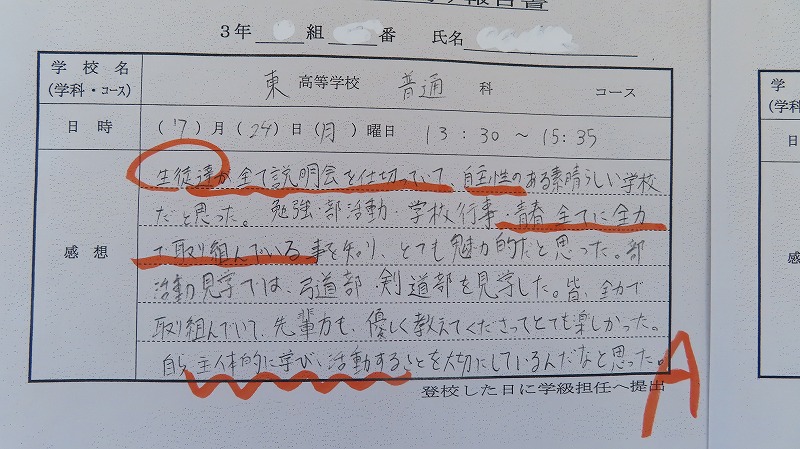 報告書
3年 組 番 氏名
学校名 東 高等学校 普通 科 コース
(学科・コース)
日時 (7)月(24)日(月)曜日 13:30～15:35
感想
生徒達が全て説明会を仕切っていて、自主性のある素晴らしい学校
だと思った。勉強・部活動・学校行事・青春全てに全力
で取り組んでいる事を知り、とても魅力的だと思った。部
活動見学では、弓道部・剣道部を見学した。皆、全力で
取り組んでいて、先輩方も、優しく教えてくださってとても楽しかった。
自ら主体的に学び、活動することを大切にしているんだなと思った。
登校した日に学級担任へ提出
A
学
(学科
日
感